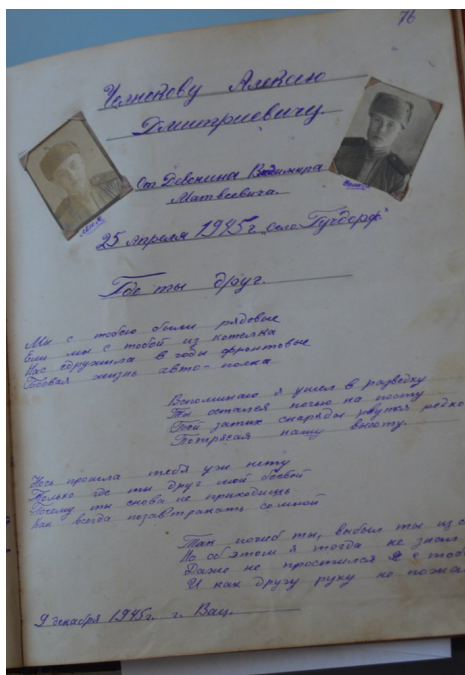 76
Челнокову Алексею
Дмитриевичу.
От Девенина Владимира
Матвеевича.
25 Апреля 1945 г. „Село Гундорф"
Где ты друг.
Мы с тобою были рядовые
Ели мы с тобой из котелка
Нас сдружила в годы фронтовые
Боевая жизнь авто-полка
Вспоминаю я ушел в разведку
Ты остался ночью на посту
Бой затих снаряды рвутся редко
Потрясая нашу высоту.
Ночь прошла тебя уж нету
Только где ты друг мой боевой
Почему ты снова не приходишь
Как всегда позавтракать со мной
Так погиб ты, выбыл ты из
Но об'этом я тогда не знал
Даже не простился я с тоб
И как другу руку не пожал
9 декабря 1945 г. г. Вац.